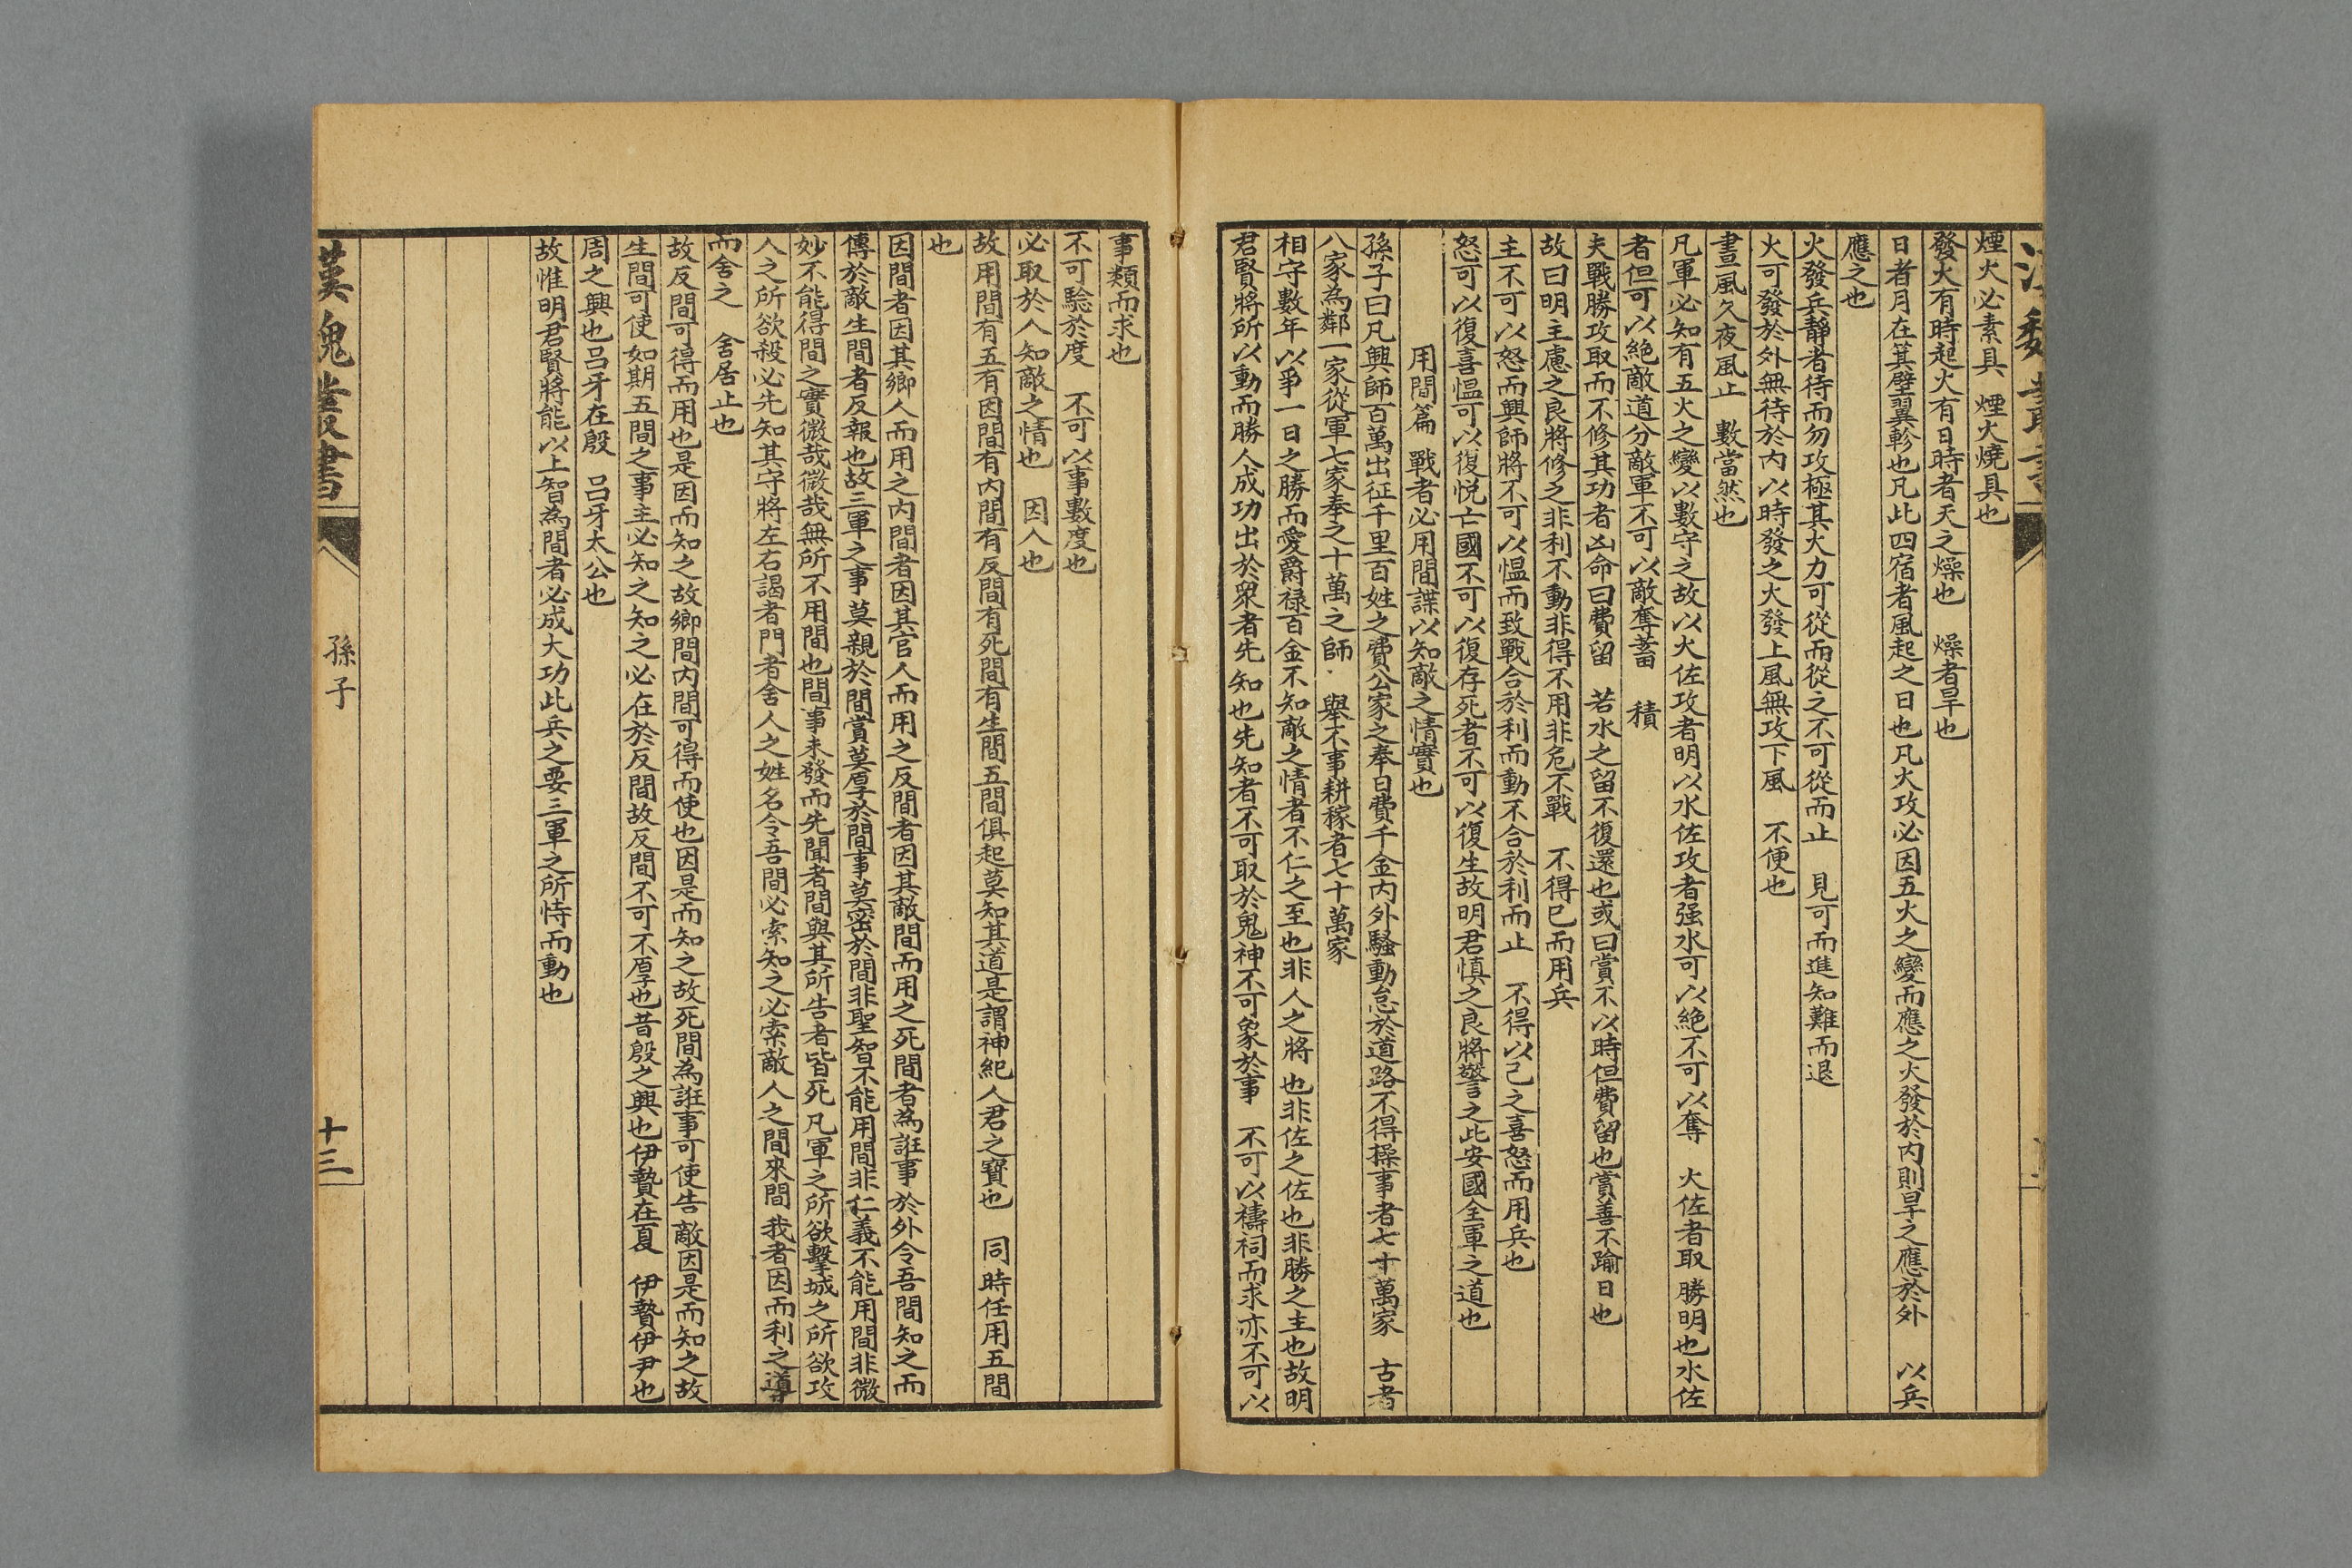 煙火必素具　煙火燒具也
發火有時起火有日時者天之燥也　燥者旱也
日者月在箕壁翼軫也凡此四宿者風起之日也凡火攻必因五火之變而應之火發於內則早之應於外　以兵
應之也
火發兵靜者待而勿攻極其火力可從而從之不可從而止　見可而進知難而退
火可發於外無待於內以時發之火發上風無攻下風　不便也
晝風久夜風止　數當然也
凡軍必知有五火之變以數守之故以火佐攻者明以水佐攻者强水可以絶不可以奪　火佐者取勝明也水佐
者但可以絶敵道分敵軍不可以敵奪蓄　積
夫戰勝攻取而不修其功者凶命曰費留　若水之留不復還也或曰賞不以時但費留也賞善不踰日也
故曰明主慮之良將修之非利不動非得不用非危不戰　不得已而用兵
主不可以怒而興師將不可以愠而致戰合於利而動不合於利而止　不得以己之喜怒而用兵也
怒可以復喜愠可以復悦亡國不可以復存死者不可以復生故明君慎之良將警之此安國全軍之道也
用間篇　戰者必用間諜以知敵之情實也
孫子曰凡興師百萬出征千里百姓之費公家之奉日費千金內外騷動怠於道路不得操事者七十萬家　古者
八家為鄰一家從軍七家奉之十萬之師　舉不事耕稼者七十萬家
相守數年以爭一日之勝而愛爵禄百金不知敵之情者不仁之至也非人之將也非佐之佐也非勝之主也故明
君賢將所以動而勝人成功出於衆者先知也先知者不可取於鬼神不可象於事　不可以禱祠而求亦不可以
事類而求也
不可驗於度　不可以事數度也
必取於人知敵之情也　因人也
故用間有五有因間有內間有反間有死間有生間五間俱起莫知其道是謂神紀人君之寶也　同時任用五間
也
因間者因其鄉人而用之內間者因其官人而用之反間者因其敵間而用之死間者為誑事於外令吾間知之而
傳於敵生間者反報也故三軍之事莫親於間賞莫厚於間事莫密於間非聖智不能用間非仁義不能用間非微
妙不能得間之實微哉微哉無所不用間也間事未發而先聞者間與其所告者皆死凡軍之所欲擊城之所欲攻
人之所欲殺必先知其守將左右謁者門者舍人之姓名令吾間必索知之必索敵人之間來間我者因而利之導
而舍之　舍居止也
故反間可得而用也是因而知之故鄉間內間可得而使也因是而知之故死間為誑事可使告敵因是而知之故
生間可使如期五間之事主必知之知之必在於反間故反間不可不厚也昔殷之興也伊摯在夏　伊摯伊尹也
周之興也吕牙在殷　吕牙太公也
故惟明君賢將能以上智為間者必成大功此兵之要三軍之所恃而動也
漢魏叢書
孫子
十三